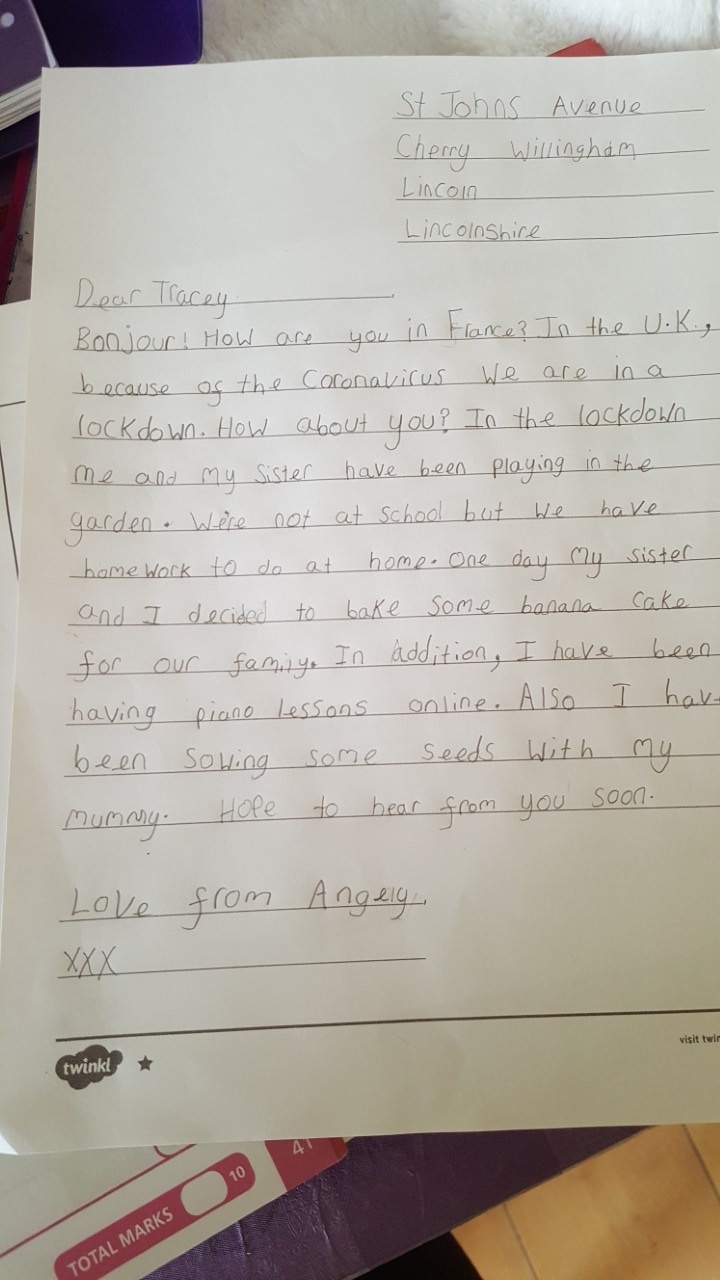 St Johns Avenue
Cherry Willingham
Lincoln
Lincolnshire
Dear Tracey
Bonjour! How are you in France? In the U.K.,
because of the Coronavirus we are in a
lockdown. How about you? In the lockdown
me and my sister have been playing in the
garden. We're not at school but we have
homework to do at home. One day my sister
and I decided to bake some banana cake
for our family. In addition, I have been
having piano lessons online. Also I hav
been sowing some seeds with my
mummy. Hope to hear from you soon.
Love from Angely.
XXX
visit twin
twinkl
41
10
TOTAL MARKS